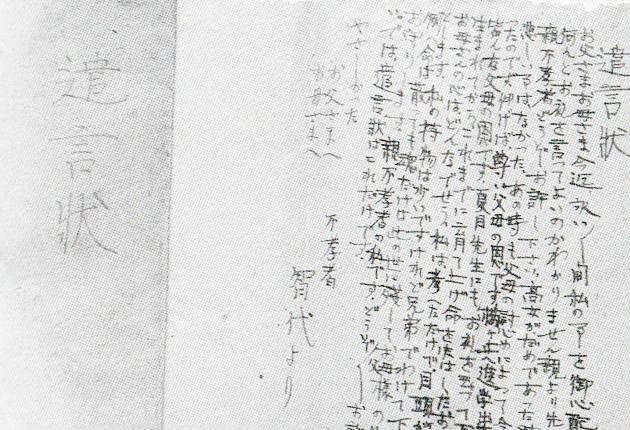 遺言状
お父さまお母さま今迄永い間私の事を御心配
何んとお礼を言ってよいのかわかりません親より先
親不孝者どうぞお許し下さい。高女がだめであった時
悲しい はなかった。あの時も父母の慰めによって今
ったのです仰げば尊い父母の恩です 進学出
皆んな父母の恩です。夏目先生にもお礼を云って下
生まれてからこれまでに育てて上げ命を失はしたお
お母さんの心はどんなでせう私は考へただけで目頭が
だします。私の持物は少いですけれど兄弟でわけて下
例へ命は散っても魂だけはこの世に残して父母様の
お守りします。親不孝者の私です。どうぞ お許
では遺言状はこれだけです。
やさしかった
お父さまへ
お母さまへ
不孝者
智代より
遺言状